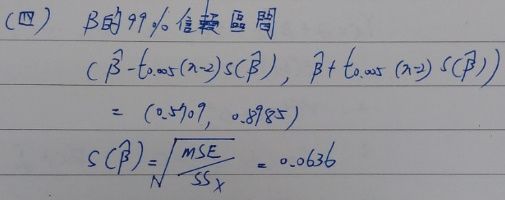 (四) β的99%信賴區間
(β̂-t0.005(n-2)S(β̂), β̂+t0.005(n-2)S(β̂))
= (0.5909, 0.8985)
S(β̂)=√(MSE/SSx) = 0.0636